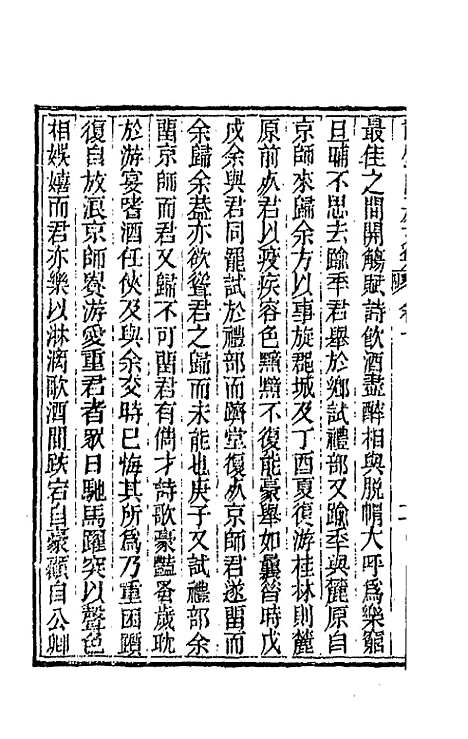 最佳之間開觴賦詩飲酒盡醉相與脫帽大呼爲樂窮
旦晡不思去踰秊君舉於鄉試禮部又踰秊與麓原自
京師來歸余方以事旋郡城及丁酉夏復游桂林則麓
原前歾君以疫疾容色黯黯不復能豪舉如曩昔時戊
戌余與君同罷試於禮部而躋堂復歾京師君遂畱而
余歸余葢亦欲耸君之歸而未能也庚子又試禮部余
畱京師而君又歸不可畱君有儁才詩歌豪豔蚤歲耽
於游宴嗜酒任俠及與余交時已悔其所爲乃重困躓
復自放浪京師賢游愛重君者眾日馳馬躍突以聲色
相娛嬉而君亦樂以淋漓歌酒間跌宕自豪顧自公卿